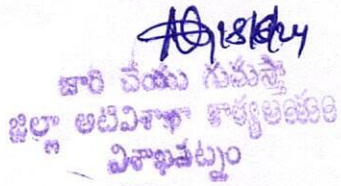 18/6/24
జారి చేయు గుమస్తా
జిల్లా అటవీశాఖా కార్యాలయం
విశాఖపట్నం